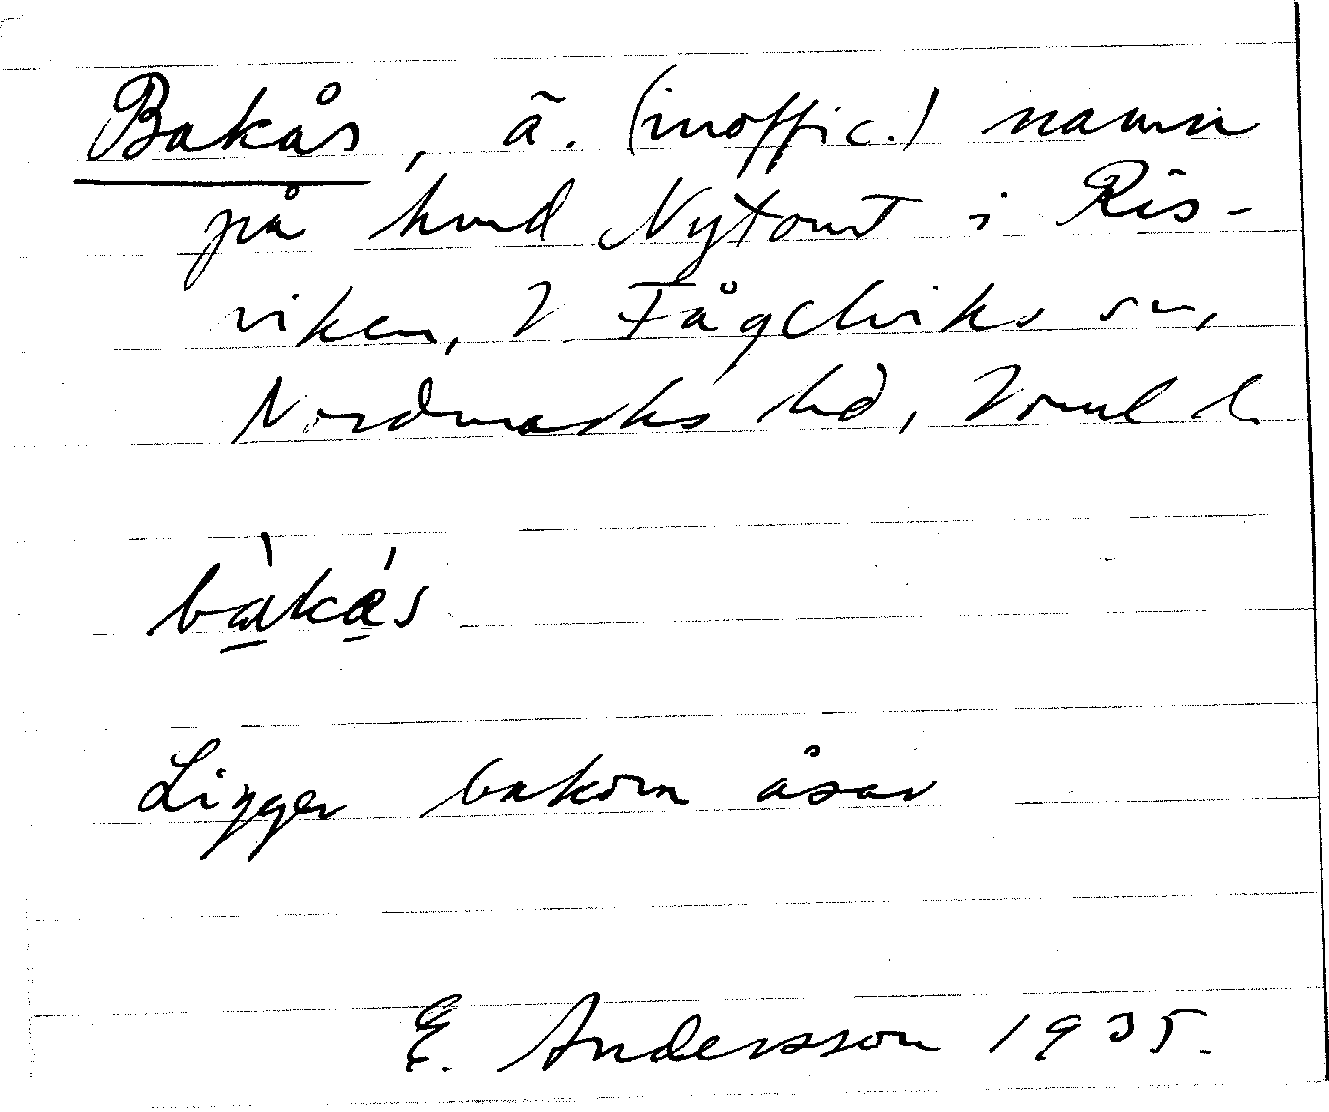 Bakås, ä. (inoffic.) namn
på hmd Nytomt i Ris-
viken, V. Fågelviks sn,
Nordmarks hd, Vrml l.
bàkás
Ligger bakom åsar
E. Andersson 1935.